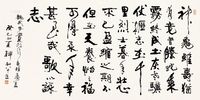 神龜雖壽猶
有竟時騰蛇乘
霧終為土灰老
驥伏櫪志在千
里烈士暮年壯
心不已盈縮之期不
但在天養怡之福
可得永年幸
甚至哉歌以詠
志
癸巳夏